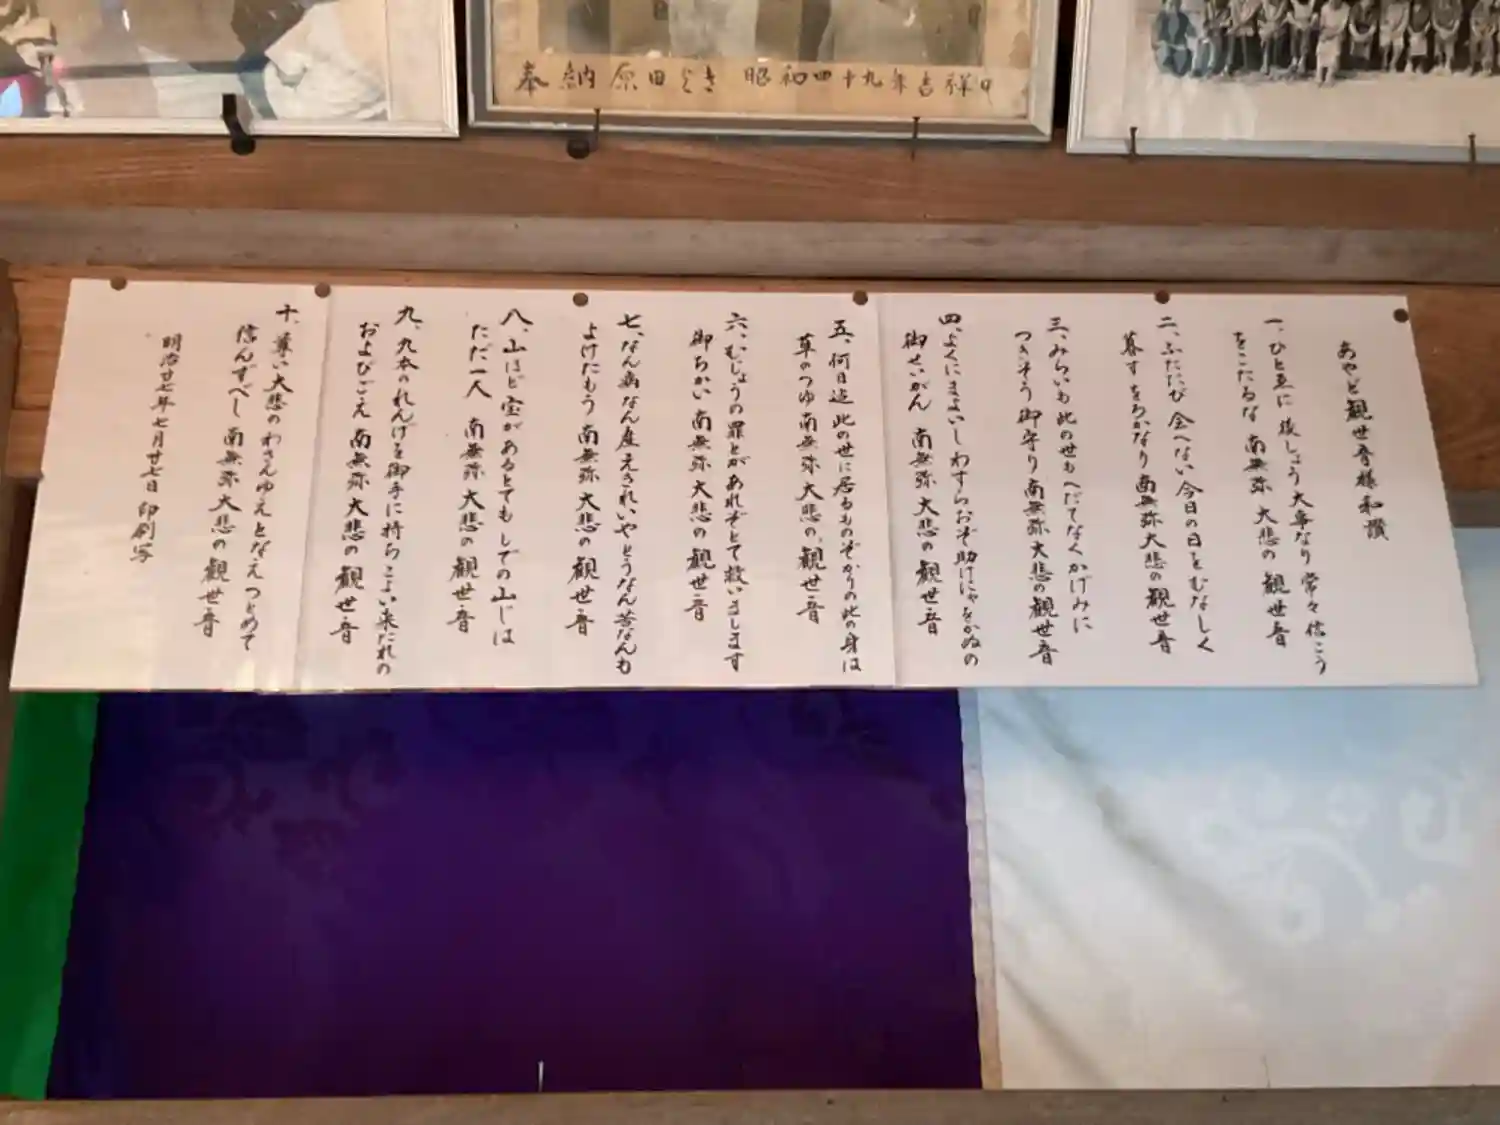 奉納 原田とき 昭和四十九年吉祥日
あやど観世音様和讃
一、ひと並に後しょう大事なり 常々信こう
をこたるな 南無弥大悲の観世音
二、ふたたび会へない今日の日をむなしく
暮すをろかなり南無弥大悲の観世音
三、みらいも此の世もへだてなくかげみに
つきそう御守り南無弥大悲の観世音
四、よくにまよいしわすらおぞ助けにゃをかぬの
御せいがん 南無弥大悲の観世音
五、何日迄此の世に居るものぞかりの此の身は
草のつゆ南無弥大悲の観世音
六、むじょうの罪とがあれぞとて救いまします
御ちかい南無弥大悲の観世音
七、なん病なん産えきれいやとうなん苦なんも
よけたもう南無弥大悲の観世音
八、山ほど宝があるとてもしでの山じは
ただ一人 南無弥大悲の観世音
九、九本のれんげを御手に持ちこよい来たれの
およびごえ南無弥大悲の観世音
十、尊い大悲のわさんゆえとなえつとめて
信んずべし南無弥大悲の観世音
明治廿七年七月廿七日印刷写